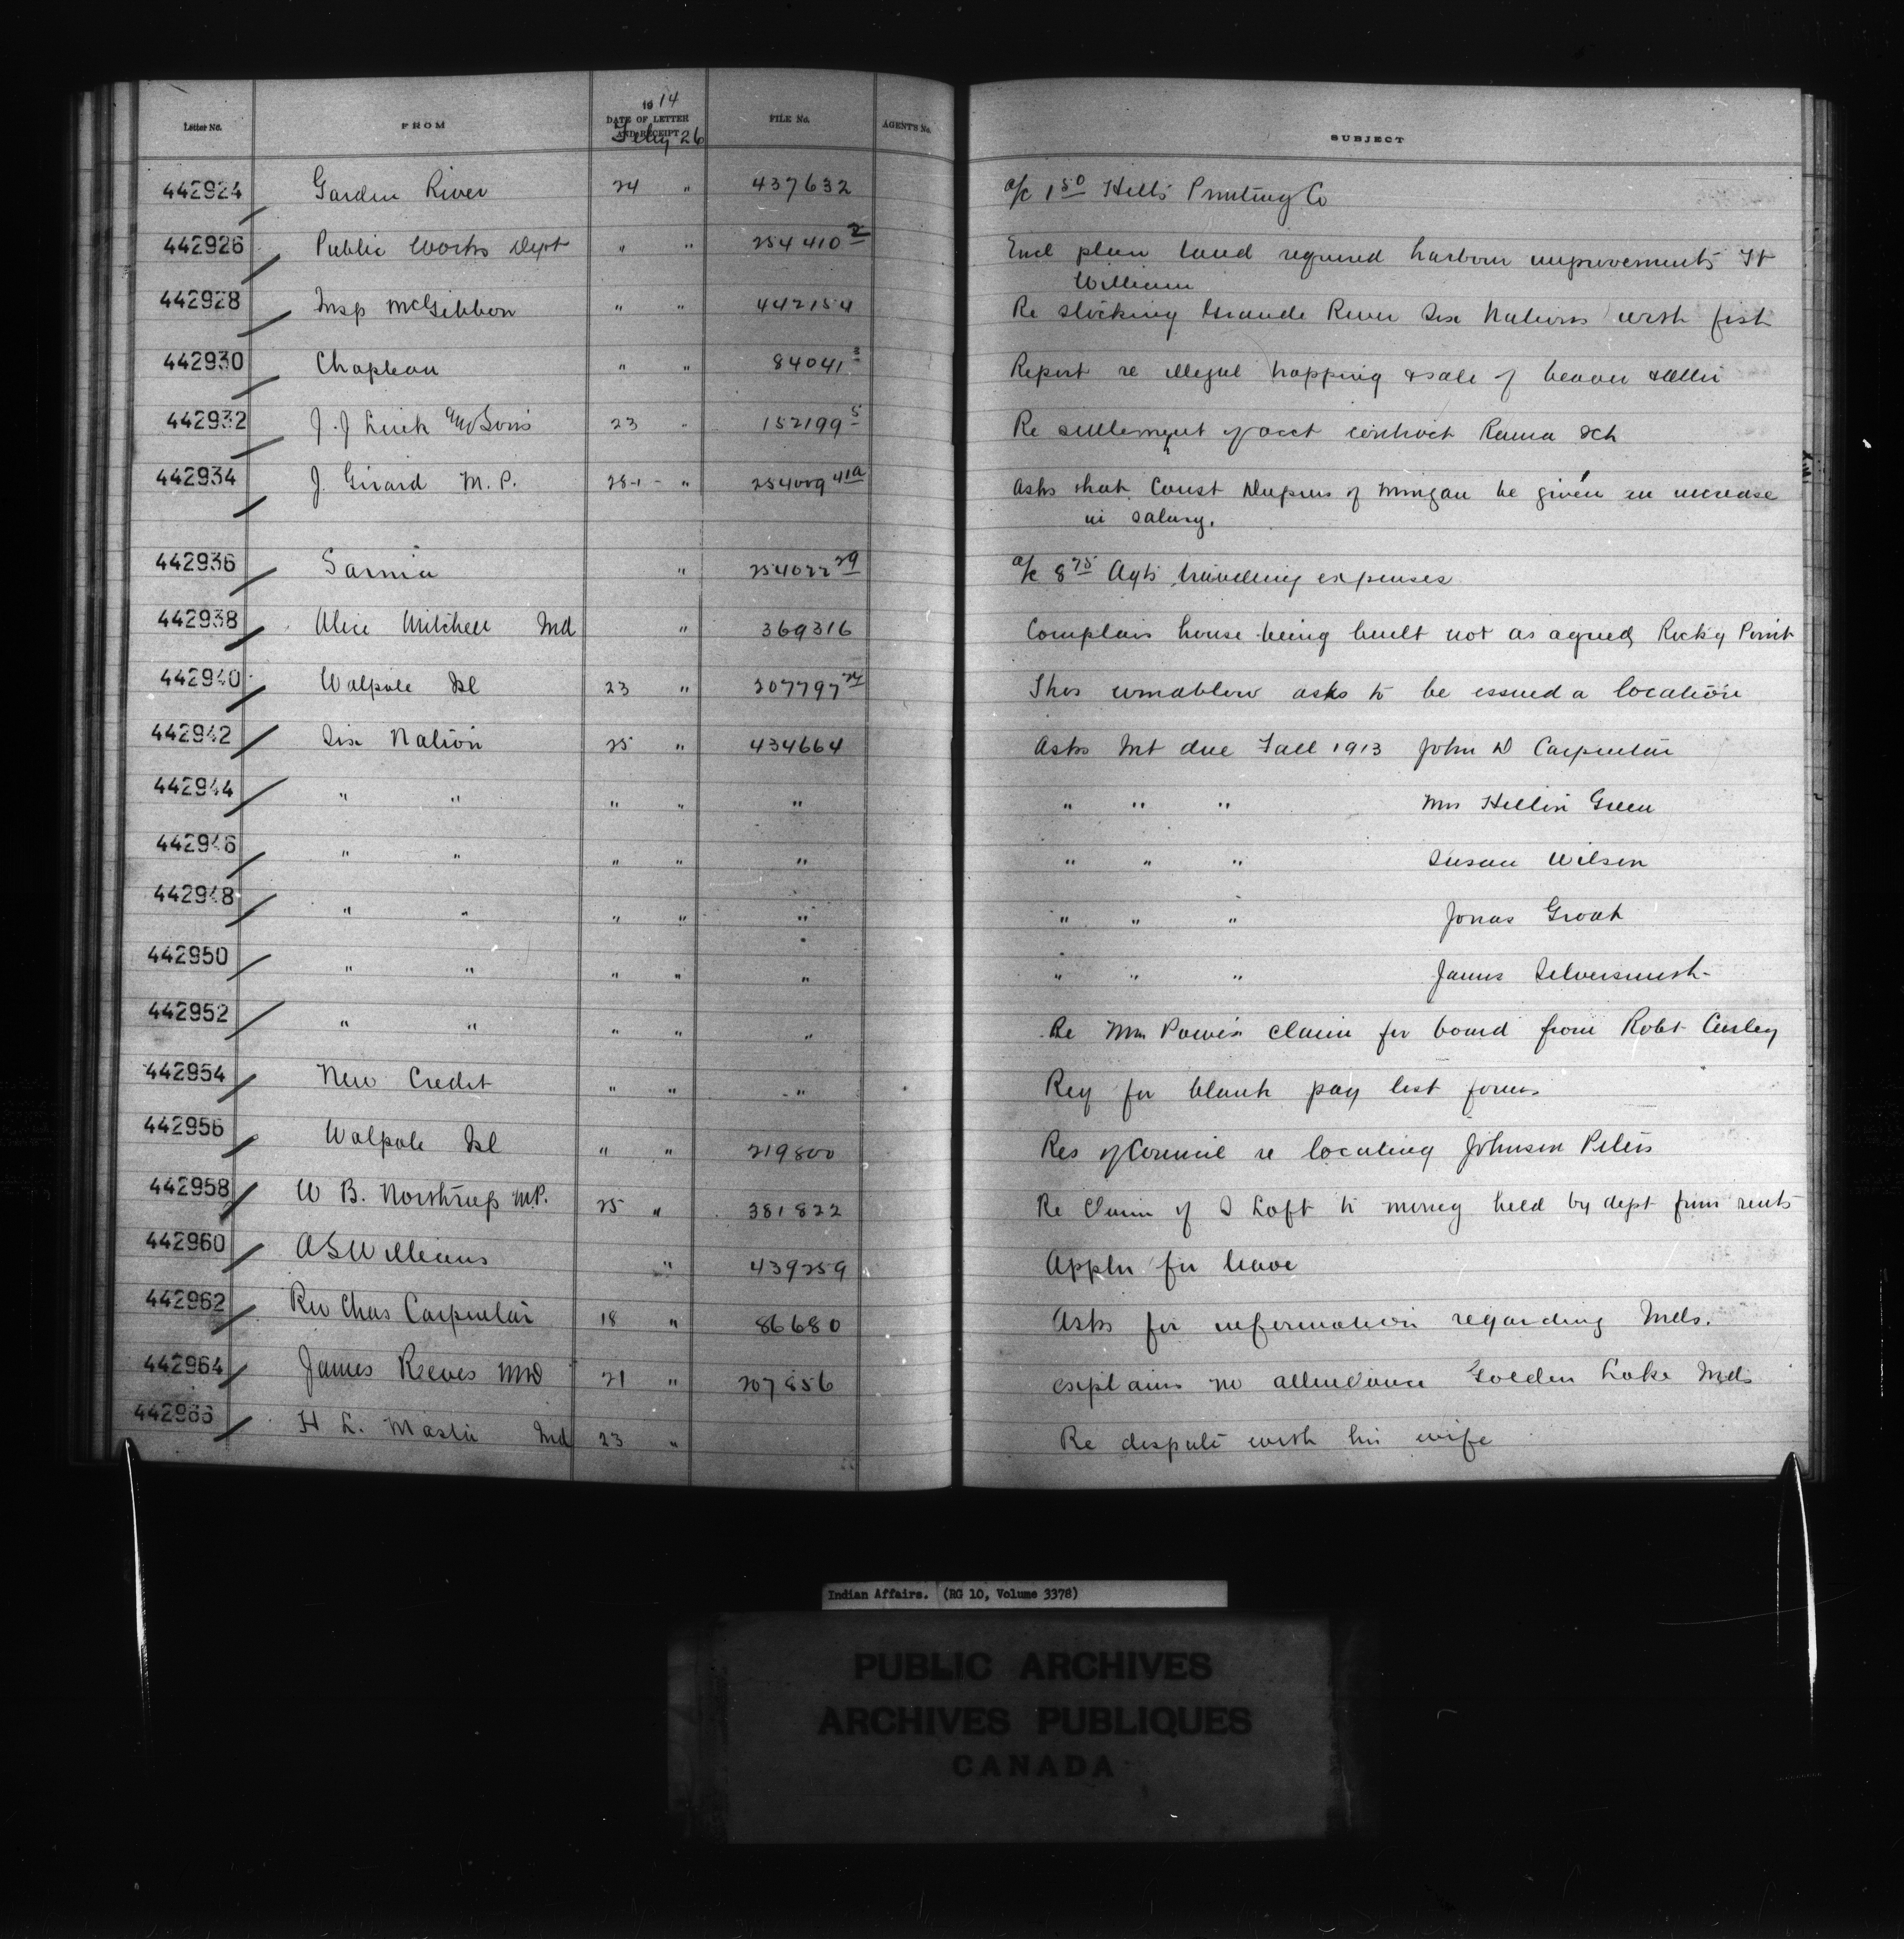 1914
Letter No. FROM DATE OF LETTER AND RECEIPT FILE No. AGENT'S No. SUBJECT
Feby 26
442924 Garden River 24 " 437632 a/c 1 50 Hills Printing Co
442926 Public Works Dept " " 254410 2 Encl plan land required harbour improvements Ft
William
442928 Insp McGibbon " " 442154 Re stocking Grande River Six Nations with fish
442930 Chapleau " " 84041 3 Report re illegal trapping & sale of beaver & otter
442932 J. J and Sons 23 " 152199 5 Re settlement of acct contract Rama Sch
442934 J. Girard M. P. 25 - " 254009 41a Asks that Const of Mingan be given an increase
in salary.
442936 Sarnia " 254022 29 a/c 8 75 Agts travelling expenses
442938 Alice Mitchell Ind " 369316 Complains house being built not as agreed, Rocky Point
442940 Walpole Isl 23 " 207797 24 Thos asks to be issued a location
442942 Six Nation 25 " 434664 Asks Int due Fall 1913 John D Carpenter
442944 " " " " " " " " Mrs Green
442946 " " " " " " " " Susan Wilson
442948 " " " " " " " " Jonas Groat
442950 " " " " " " " " James Silversmith
442952 " " " " " Re Mrs claim for board from Robt
442954 New Credit " " " Req for blank pay list forms
442956 Walpole Isl " " 219800 Res of Council re locating Johnson Peters
442958 W B. Northrup M.P. 25 " 381822 Re Claim of D Loft to money held by dept from rents
442960 A S Williams " 439259 Appln for leave
442962 Rev Chas Carpenter 18 " 86680 Asks for information regarding Inds.
442964 James Reeves MD 21 " 207856 explains no attendance Golden Lake Inds
442966 H L. Ind 23 " Re dispute with his wife
Indian Affairs. (RG 10, Volume 3378)
PUBLIC ARCHIVES
ARCHIVES PUBLIQUES
CANADA